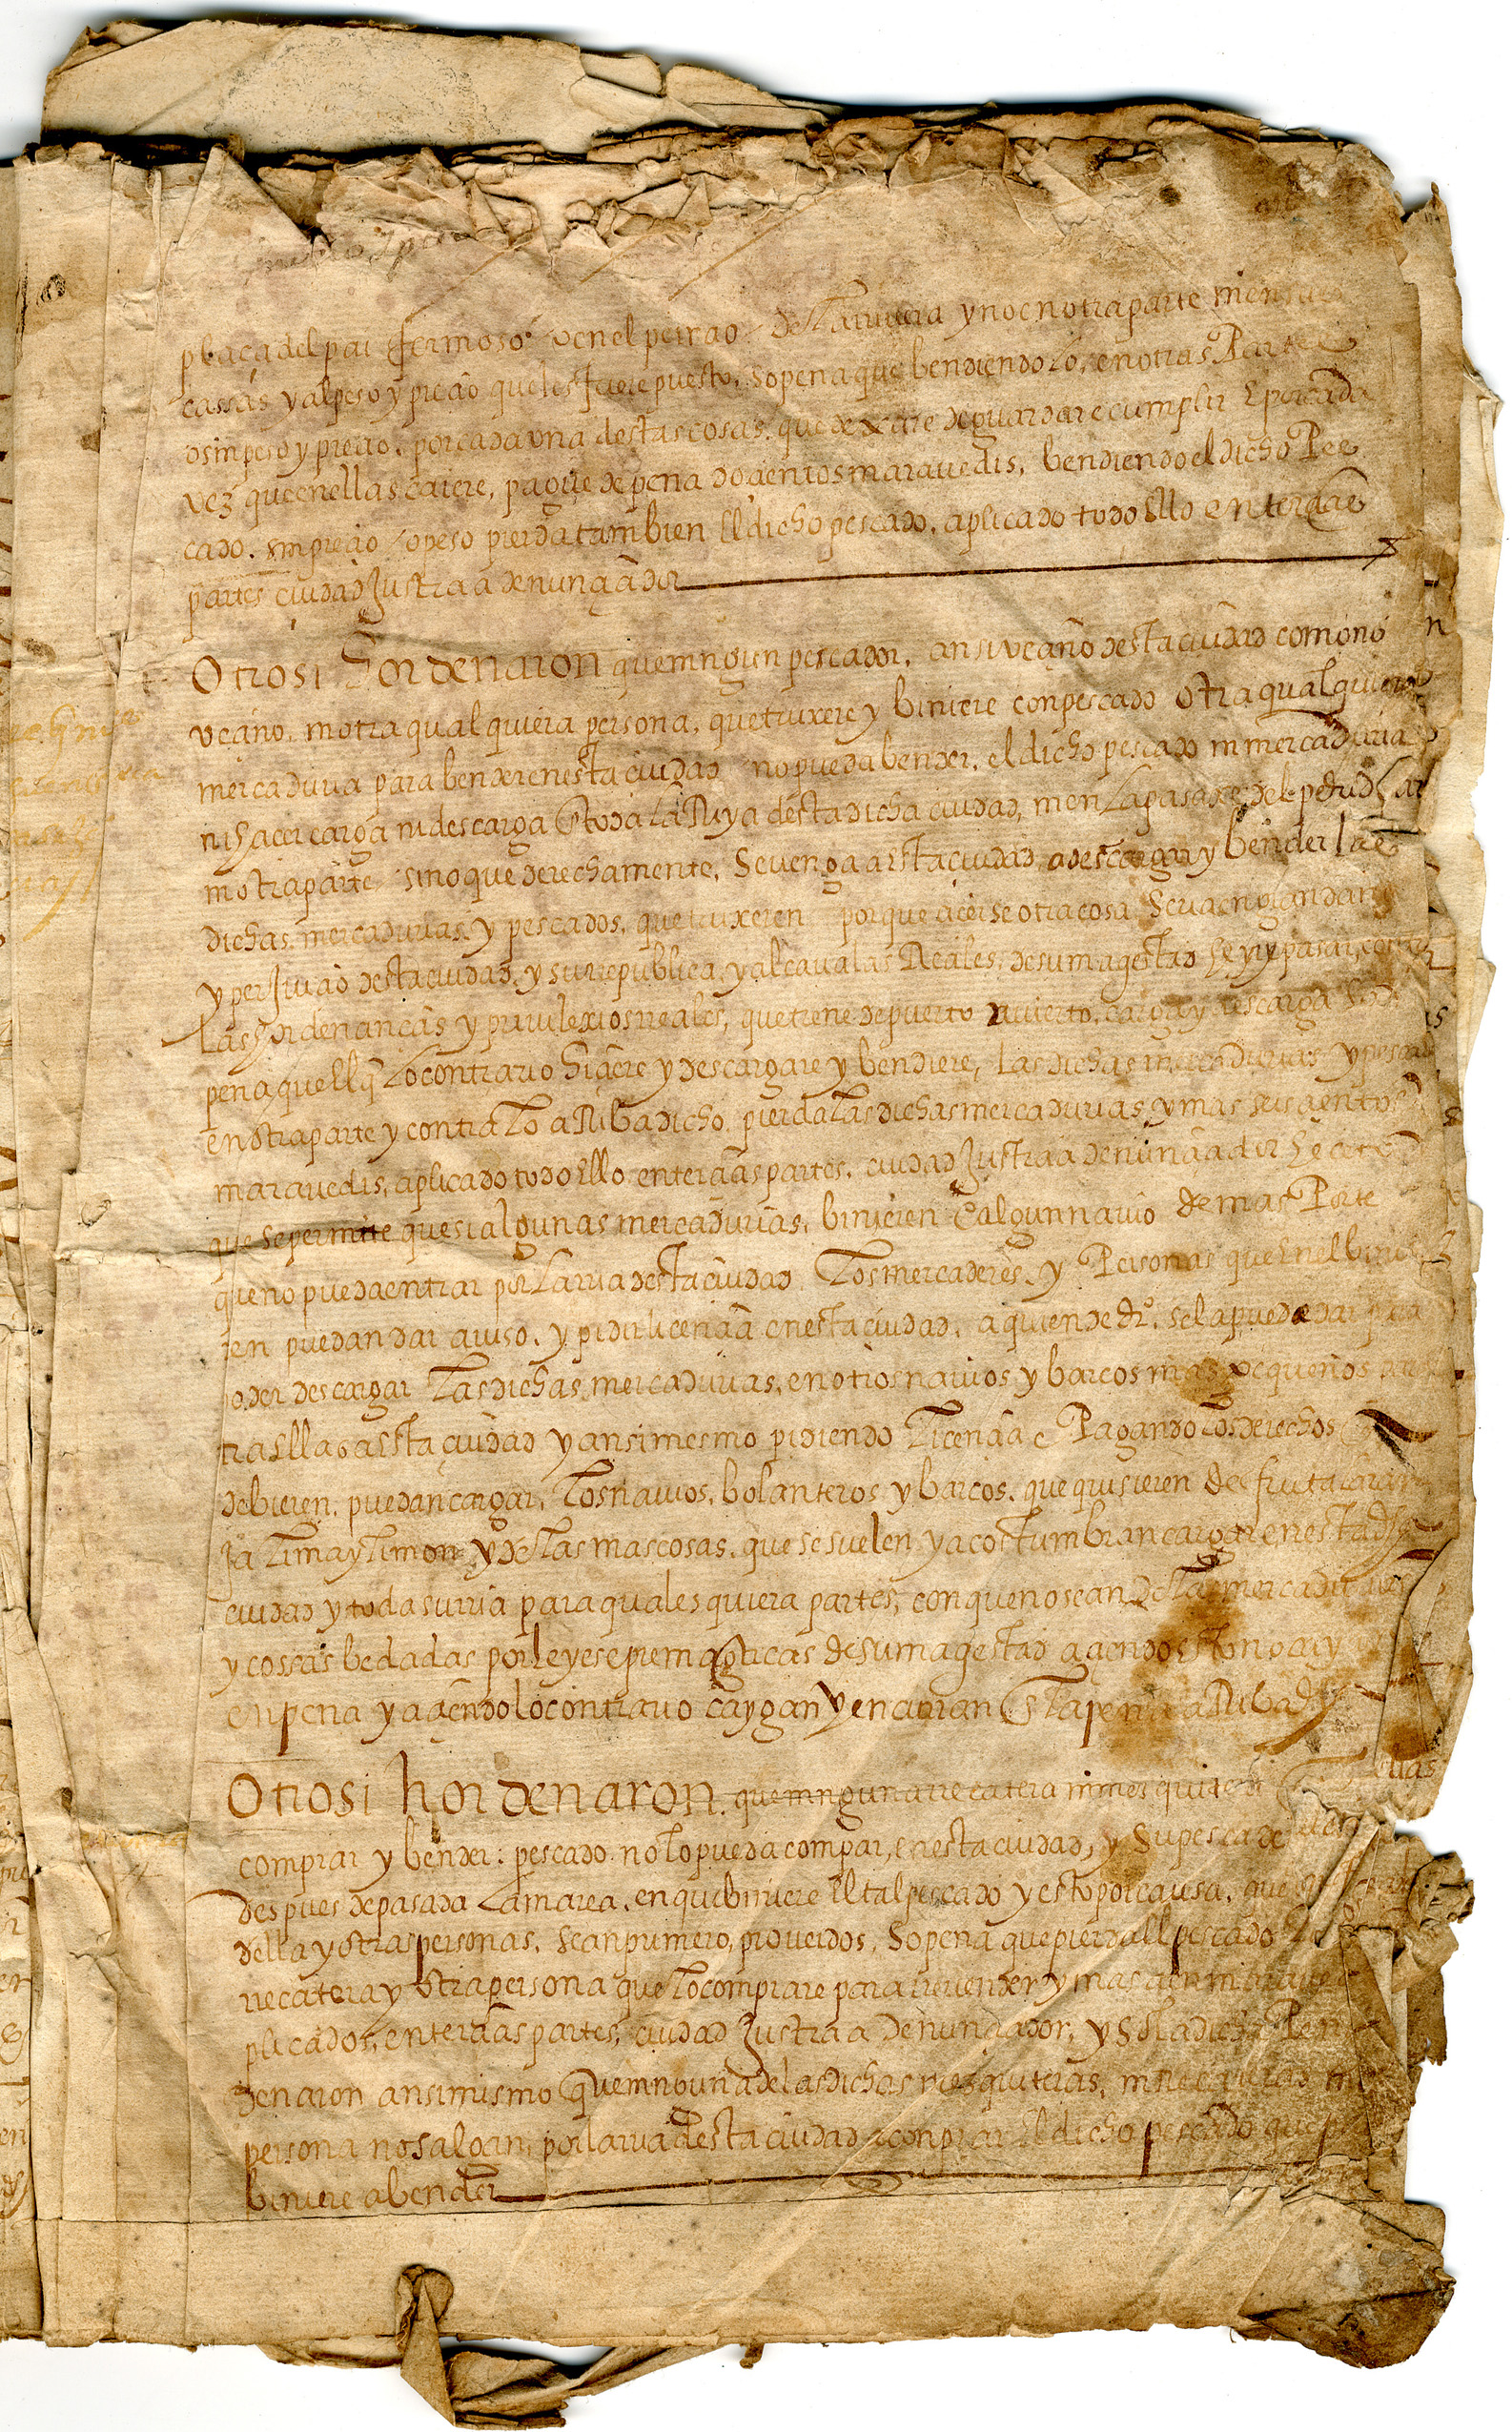 plaça del pai fermoso o en el peirao de la rivera y no en otra parte ni en sus
cassas y al peso y preçio que les fuere puesto, so pena que bendiendolo, en otras Partes
o sin peso y preçio. por cada una destas cosas. que dexare de guardar e cumplir E por cada
vez que en ellas caiere, pague de pena doçientos maravedis, bendiendo el dicho Pes
cado. sin preçio / o peso pierda tambien El dicho pescado, aplicado todo Ello en terçias
partes çiudad Justiçia denunçiador
Otrosi hordenaron que ningun pescador, ansi veçino desta çiudad como no
veçino, ni otra qualquiera persona, que truxere y biniere con pescado otra qualquiera
mercaduria para bender en esta çiudad no pueda bender, el dicho pescado ni mercaduria
ni haçer carga ni descarga En toda la Riya desta dicha çiudad, ni en la pasaxe del
ni otra parte sino que derechamente, Se venga a esta çiudad, a descargar y bender las
dichas. mercadurias. y pescados, que truxeren porque açerse otra cosa Seria en gran daño
y perJuiçio desta çiudad, y su republica, y alcavalas Reales, de su magestad he yr y pasar, contra
las Hordenanças y privilexios reales, que tiene de puerto avierto. carga y descarga So
pena que ell q lo contrario hiçiere y descargare y bendiere, las dichas mercadurias y pescado
en otra parte y contra lo aRiba dicho pierda las dichas mercadurias, y mas seisçientos
maravedis, aplicado todo Ello. en terçias partes, çiudad Justiçia denunçiador
que se permite que si algunas mercadurias, binieren En algun navio de mas Porte
que no pueda entrar por la ria desta çiudad los mercaderes. y Personas que en el binie
ren puedan dar aviso. y pidir liçençia en esta çiudad, a quien de dr.º se la pueda dar para
poder descargar las dichas mercadurias, en otros navios y barcos mas pequeños para
traElla a Esta çiudad y ansimesmo pidiendo liçençia e Pagando los derechos
debieren. puedan cargar, los navios, bolanteros y barcos. que quisieren de fruta laran
ja lima y limon y de las mas cosas. que se suelen y acostumbran cargar en esta dha
çiudad y toda su ria para quales quiera partes, con que no sean de las mercadurias
y cossas bedadas por leyes e premagticas de su magestad açiendo Esto no ay
en pena y açiendo lo contrario caygan y encurran En la pena aRiba dha
Otrosi hordenaron. que ninguna recatera ni mesquitera
comprar y bender: pescado. no lo pueda compar, en esta çiudad, y su pescaderia
despues de pasada la marea, en que biniere El tal pescado y esto por causa, que
della y otras personas. sean primero, proveidos, So pena que pierda ell pescado
recatera y otra persona que lo comprare para revender y mas
plicados, en terçias partes, çiudad Justiçia Denunçiador, y So la dicha Pena
denaron ansimismo que ninguna de las dichas mezquiteras, ni recateras ni
persona no salgan, por la ria desta çiudad a conprar El dicho pescado que se
biniere a bender